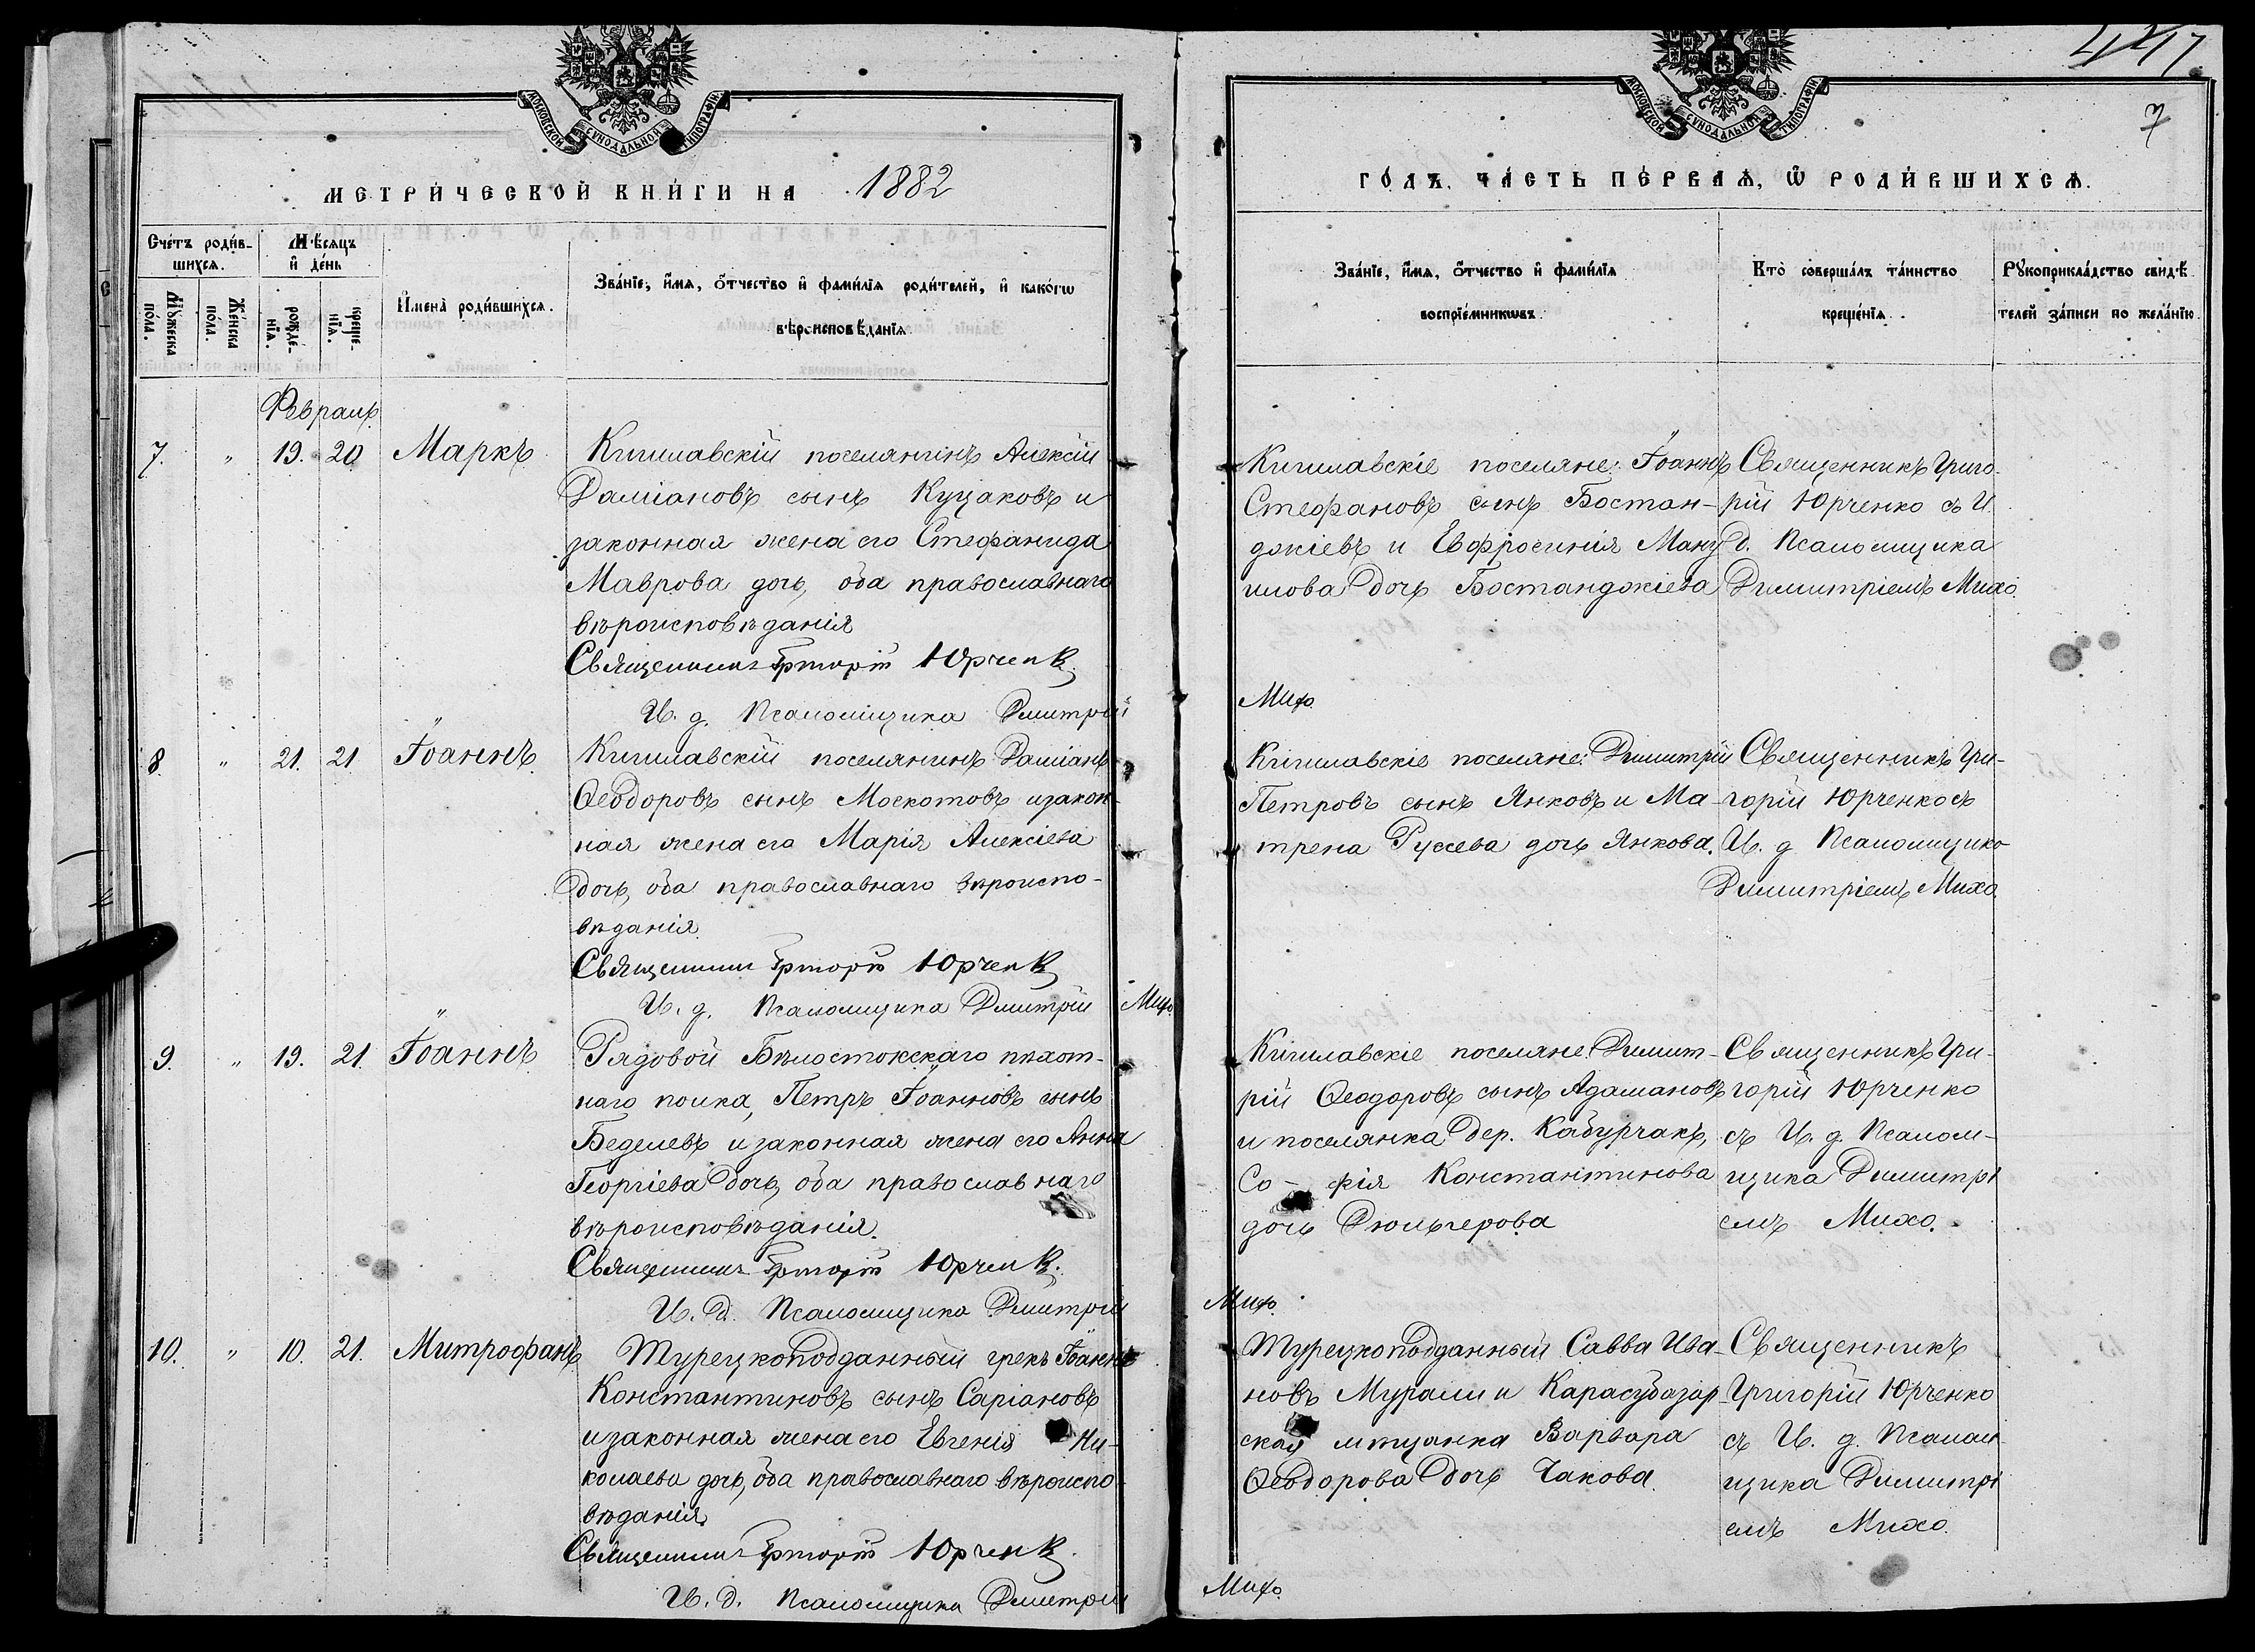 МОСКОВСКОЙ СѴНОДАЛЬНОЙ ТИПОГРАФІИ
МЕТРИЧЕСКОЙ КНИГИ НА 1882
Счетъ родив-
шихся.
Мѣсяцъ
и день
Мужеска
пола.
Женска
пола.
рожде-
нія.
креще-
нія.
Имена родившихся.
Званіе, имя, отчество и фамилія родителей, и какогѡ
вѣроисповѣданія.
Февраль
7. " 19. 20. Маркъ
Кишлавскій поселянинъ Алексій
Даміановъ сынъ Куцаковъ и
законная жена его Стефанида
Маврова дочь, оба православнаго
вѣроисповѣданія
Священникъ Григорій Юрченко
И. д. Псаломщика Димитрій Михо.
8. " 21. 21 Іоаннъ.
Кишлавскій поселянинъ Даміанъ
Ѳеодоровъ сынъ Москотовъ и закон-
ная жена его Марія Алексіева
дочь, оба православнаго вѣроиспо-
вѣданія.
Священникъ Григорій Юрченко
И. д. Псаломщика Димитрій Михо.
9. " 19. 21. Іоаннъ
Рядовой Бѣлостокскаго пѣхот-
наго полка, Петръ Іоанновъ сынъ
Беделевъ и законная жена его Анна
Георгіева дочь, оба православнаго
вѣроисповѣданія.
Священникъ Григорій Юрченко.
И. д. Псаломщика Димитрій Михо.
10. " 10. 21. Митрофанъ
Турецкоподданный грекъ Іоаннъ
Константиновъ сынъ Саріановъ
и законная жена его Евгенія Ни-
колаева дочь, оба православнаго вѣроиспо-
вѣданія.
Священникъ Григорій Юрченко.
И. д. Псаломщика Димитрій Михо.
МОСКОВСКОЙ СѴНОДАЛЬНОЙ ТИПОГРАФІИ
7
ГОДЪ, ЧАСТЬ ПЕРВАЯ, Ѡ РОДИВШИХСЯ.
Званіе, имя, отчество и фамилія
воспріемниковъ.
Кто совершалъ таинство
крещенія.
Рукоприкладство свидѣ-
телей записи по желанію.
Кишлавскіе поселяне: Іоаннъ
Стефановъ сынъ Бостан-
джіевъ и Евфросинія Ману
илова дочь Бостанджіева
Священникъ Григо-
рій Юрченко съ И.
д. Псаломщика
Димитріемъ Михо.
Кишлавскіе поселяне: Димитрій
Петровъ сынъ Янковъ и Ма-
трена Руссева дочь Янкова.
Священникъ Гри-
горій Юрченко съ
И. д. Псаломщико
Димитріемъ Михо.
Кишлавскіе поселяне: Димит-
рій Ѳеодоровъ сынъ Адамановъ
и поселянка дер. Кабурчакъ,
Со-фія Константинова
дочь Дюльгерова
Священникъ Гри-
горій Юрченко
съ И. д. Псалом-
щика Димитрі
емъ Михо.
Турецкоподданный Савва Ива-
новъ Мурали и Карасубазар-
ская мѣщанка Варвара
Ѳеодорова дочь Чакова.
Священникъ
Григорій Юрченко
съ И. д. Псалом-
щика Димитрі
емъ Михо.